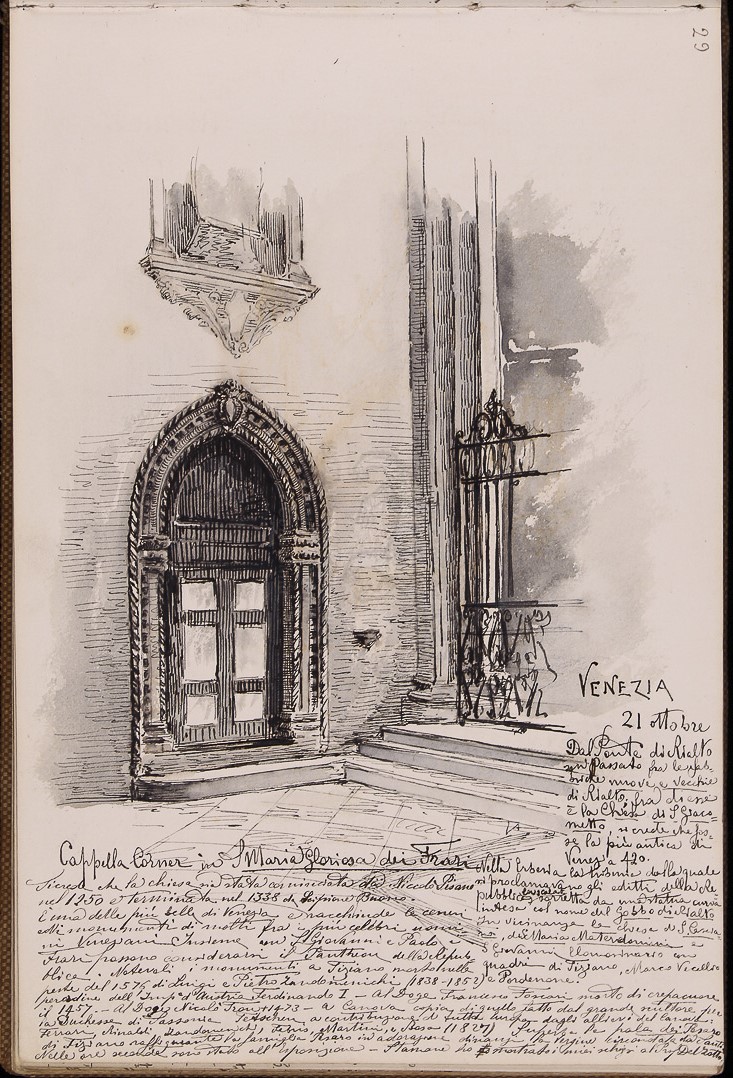 29
VENEZIA
21 ottobre
Dal Ponte di Rialto
un passato fra le fab-
briche nuove e vecchie
di Rialto. fra di esse
è la Chiesa di S Giaco-
metto si crede che fos-
se la più antica di
Venez a 420.
Nella Erberia la tribuna dalla quale
si proclamavano gli editti della Re
pubblica sorretta da una statua curva
intesa col nome del Gobbo di Rialto
In vicinanza le chiese di S Cassia-
no, di Maria Materdomini e
S Giovanni Elemosinario con
quadri di Tiziano, Marco Vecellio
e Pordenone.
Cappella Corner in S Maria Gloriosa dei Frari
che la chiesa sia stata cominciata da Nicolò Pisano
nel 1250 e terminata nel 1338 da Scipione Buono.
È una delle più belle di Venezia e racchiude le ceneri
ed i monumenti di molti fra i più celebri uomi
ni Veneziani Insieme con S Giovanni e Paolo i
Frari possono considerarsi il Pantheon della Repub
blica. Notevoli i monumenti a Tiziano morto nella
peste del 1576 di Luigi e Pietro Zandomenichi (1838-1852)
per ordine dell' Imp. d'Austria Ferdinando I - Al Doge Francesco Foscari morto di crepacuore
il 1457. - Al Doge Nicolò Tron 1473 - a Canova copia di quello fatto dal grande scultore per
la Duchessa di Sassonia Teschen a contribuzione di tutta Europa dagli allievi del Canova
Ferrari, Rinaldi Zandomenichi, Fabris, Martini e Bosa (1827) la pala dei Pesaro
di Tiziano raffigurante la famiglia Pesaro in adorazione dinanzi la Vergine circondata da Santi
Nelle ore seconde sono stato all'esposizione - Stamane ho mostrato i miei schizzi al Prof Dal Zotto